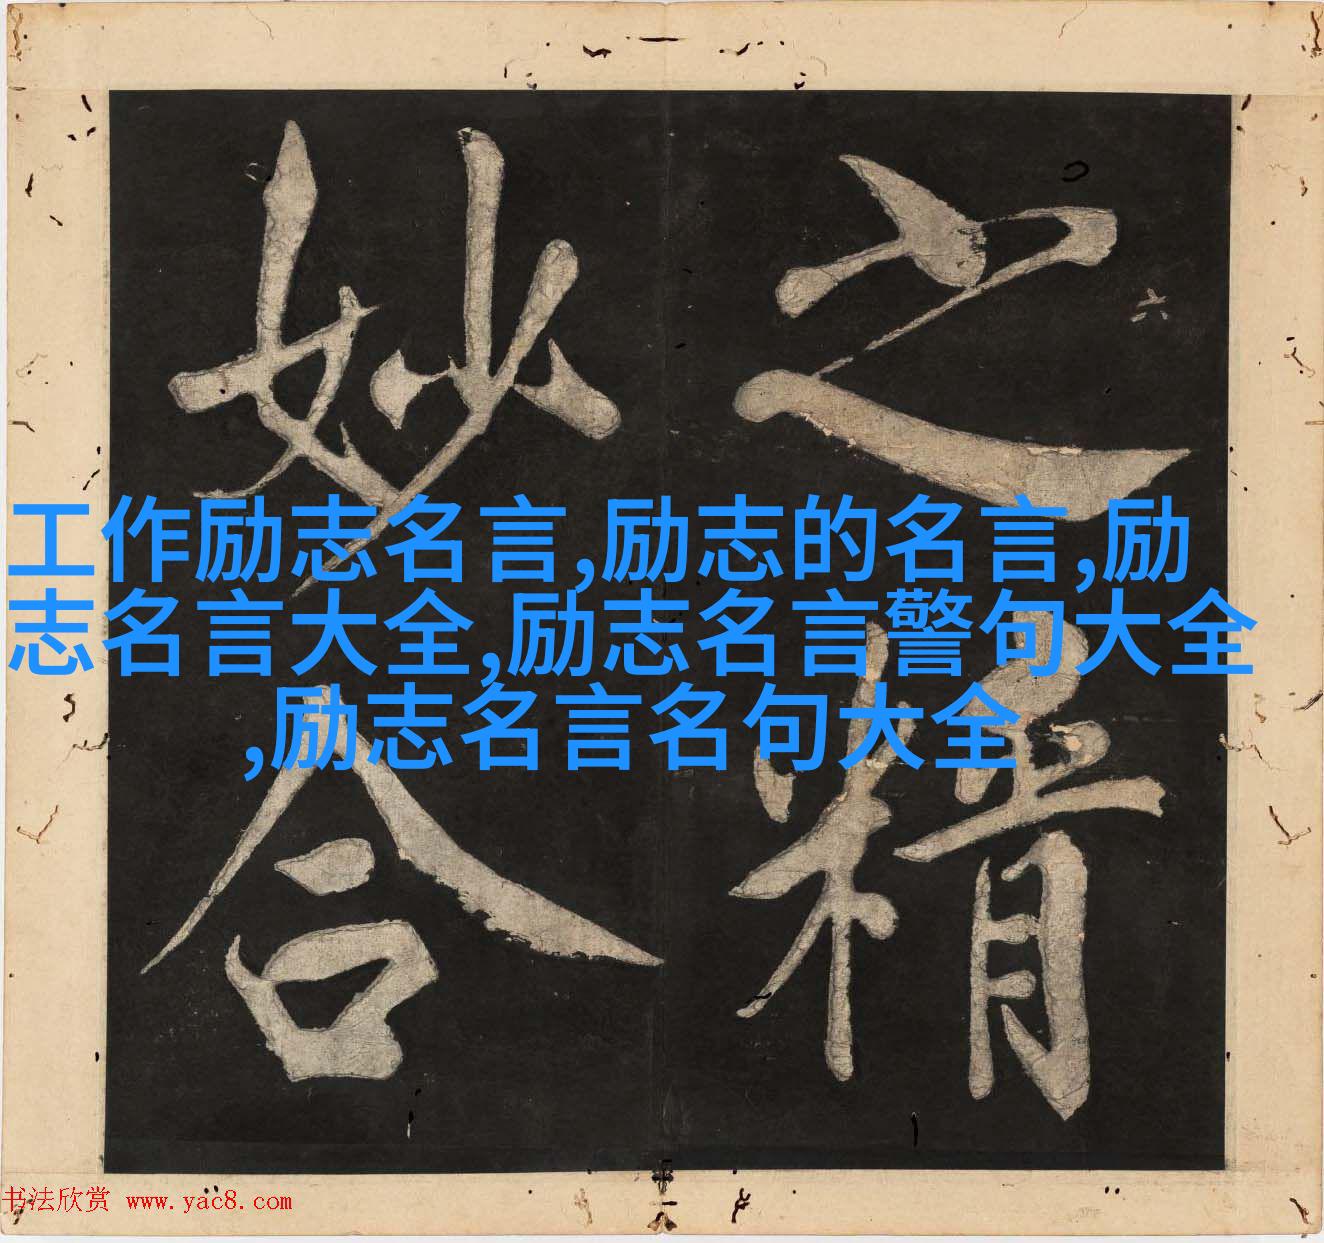 之精
妙合
六
工作励志名言,励志的名言,励
志名言大全,励志名言警句大全
,励志名言名句大全
书法欣赏 www.yac8.com